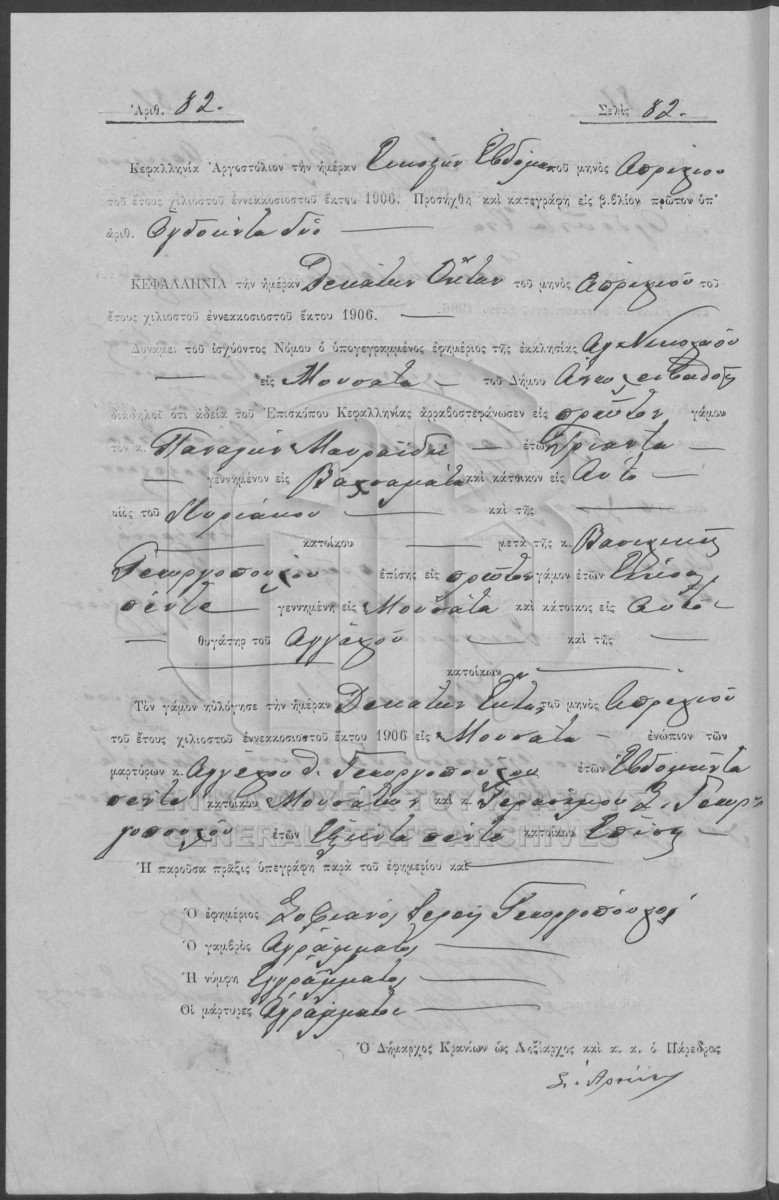 Ἀριθ. 82. Σελὶς 82.
Κεφαλληνία Ἀργοστόλιον τὴν ἡμέραν Εἰκοστὴν Ἑβδόμην τοῦ μηνὸς Ἀπριλίου
τοῦ ἔτους χιλιοστοῦ ἐννεακοσιοστοῦ ἕκτου 1906. Προσήχθη καὶ κατεγράφη εἰς βιβλίον πρῶτον ὑπ'
ἀριθ. Ὀγδοήντα δύο
ΚΕΦΑΛΛΗΝΙΑ τὴν ἡμέραν Δεκάτην Ὀκτὼ τοῦ μηνὸς Ἀπριλίου τοῦ
ἔτους χιλιοστοῦ ἐννεακοσιοστοῦ ἕκτου 1906.
Δυνάμει τοῦ ἰσχύοντος Νόμου ὁ ὑπογεγραμμένος ἐφημέριος τῆς ἐκκλησίας Ἁγ. Νικολάου
εἰς Μουσάτα τοῦ Δήμου
διαδηλοῖ ὅτι ἀδείᾳ τοῦ Ἐπισκόπου Κεφαλληνίας ἀρραβοστεφάνωσεν εἰς πρῶτον γάμον
τὸν κ. Παναγὴν Μαυροειδῆ ἐτῶν Τριάντα
γεννημένον εἰς Βαλσαμάτα καὶ κάτοικον εἰς Αὐτὸ
υἱὸς τοῦ Κυριάκου καὶ τῆς
κατοίκου μετὰ τῆς κ. Βασιλικῆς
Γεωργοπούλου ἐπίσης εἰς πρῶτον γάμον ἐτῶν Εἴκοσι
πέντε γεννημένη εἰς Μουσάτα καὶ κάτοικος εἰς Αὐτὸ
θυγάτηρ τοῦ Ἀγγέλου καὶ τῆς
κατοίκων
Τὸν γάμον ηὐλόγησε τὴν ἡμέραν Δεκάτην Ἕκτην τοῦ μηνὸς Ἀπριλίου
τοῦ ἔτους χιλιοστοῦ ἐννεακοσιοστοῦ ἕκτου 1906 εἰς Μουσάτα ἐνώπιον τῶν
μαρτύρων κ. Ἀγγέλου Θ. Γεωργοπούλου ἐτῶν Ἑβδομήντα
πέντε κατοίκου Μουσάτων καὶ κ. Γερασίμου Σ. Γεωρ-
γοπούλου ἐτῶν Ἑξήντα πέντε κατοίκου Ἐπίσης
ΓΕΝΙΚΑ ΑΡΧΕΙΑ ΤΟΥ ΚΡΑΤΟΥΣ
GENERAL STATE ARCHIVES
Ἡ παροῦσα πρᾶξις ὑπεγράφη παρὰ τοῦ ἐφημερίου καὶ
Ὁ ἐφημέριος Σοφιανὸς Ἱερεὺς Γεωργόπουλος
Ὁ γαμβρὸς Ἀγράμματος
Ἡ νύμφη Ἀγράμματος
Οἱ μάρτυρες Ἀγράμματοι
Ὁ Δήμαρχος Κρανίων ὡς Ληξίαρχος καὶ κ. κ. ὁ Πάρεδρος